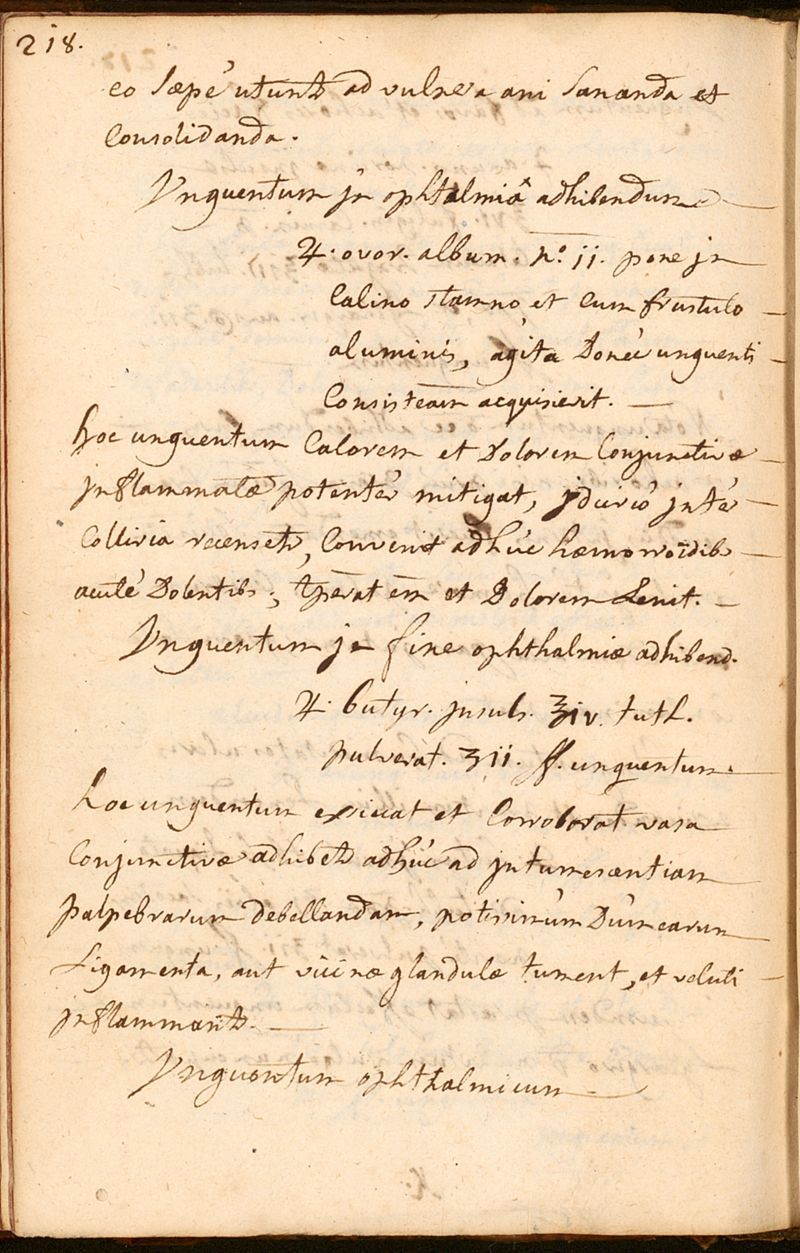 218.
eo sæpè utuntr ad vulnera ani sananda et
Consolidanda.
Unguentum jn ophtalmiâ adhibendum
♃. ovor. album. nº. ii. pone jn
Calino stamno et cum frustulo
aluminis, agita Donec unguenti
Consisteam acquisierit.
hoc unguentum Calorem et Dolorem Conjunctivæ
jnflammatæ potentèr mitigat, jdcircò jntèr
Colliria recensetr, Convenit adhùc hæmorroïdib
acutè Dolentibs; tperat em et Dolorem Lenit.
Unguentum jn fine ophthalmiæ adhibend.
♃. butyr. jnsuls. ʒiv. tuth.
pulverat. ʒii. ff. unguentum.
hoc unguentum exiccat et Corroborat vasa
Conjunctivæ adhibetr adhùc ad jntumescentiam
palpebrarum debellandam, potissimùm Dùm earum
Ligamenta, aut vicinæ glandulæ tument, et veluti
jnflammantr.
Unguentum ophthalmicum